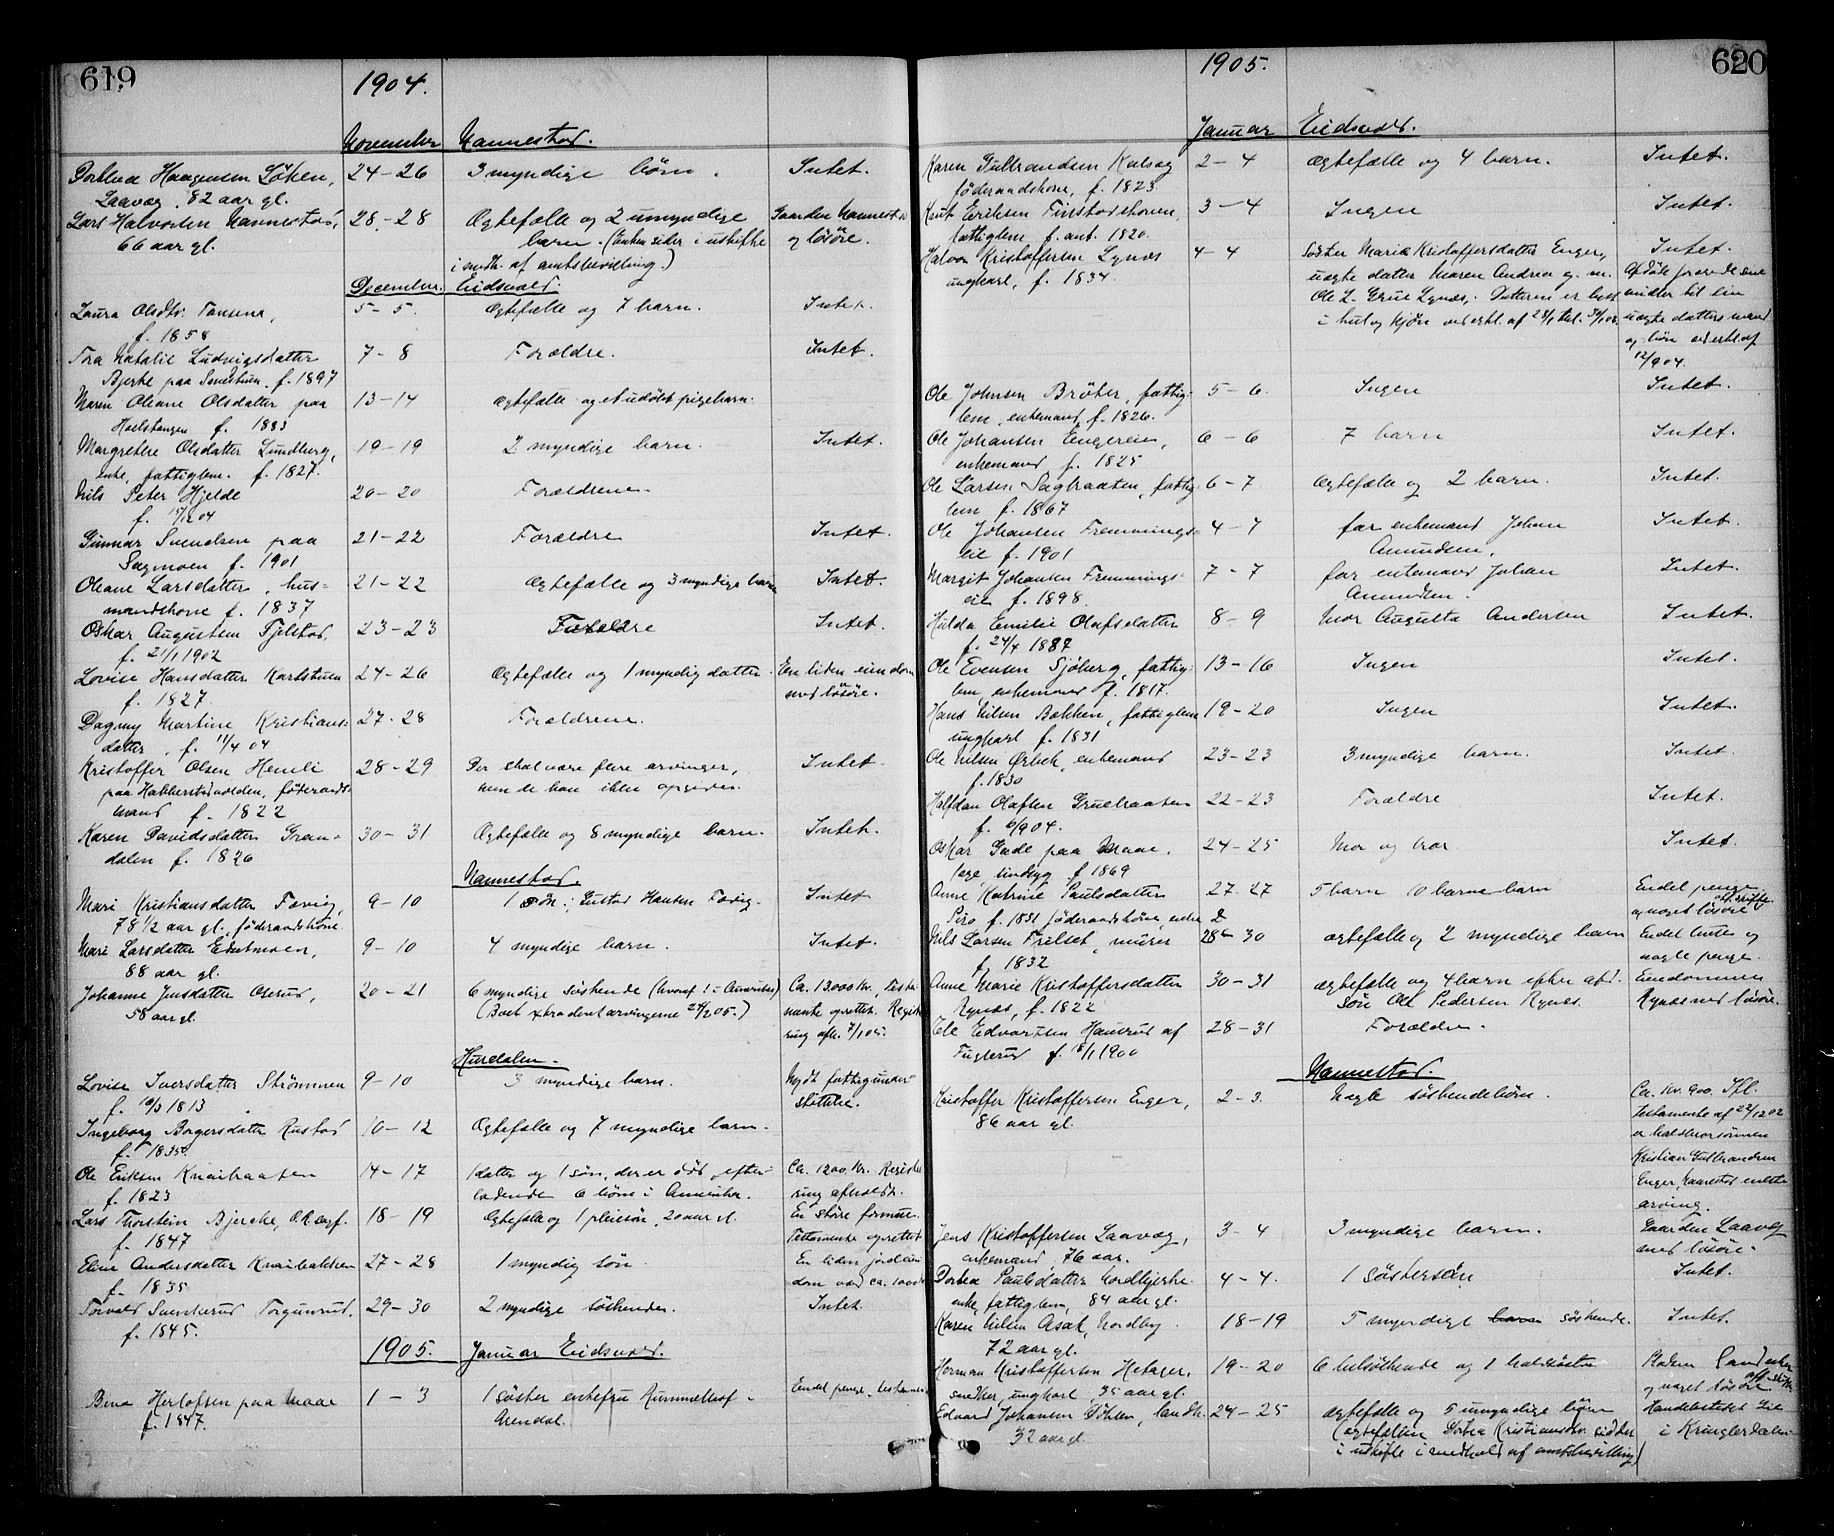 619
1904.
November Nannestad.
Haagensen Løken, 24-26 3 myndige børn. Intet.
Laaveg, 82 aar gl.
Lars Halvorsen Nannestad, 28-28 Ægtefælle og 2 umyndige Gaarden Nannestad
66 aar gl. barn. (Enken sider i uskifte og løsøre.
i medh. af amtsbevilling.)
December. Eidsvold.
Laura Olsdtr. 5-5. Ægtefælle og 7 barn. Intet.
f. 1858
Natalie Ludvigsdatter 7-8 Forældre. Intet.
Bjerke paa f. 1897
Maren Oleane Olsdatter paa 13-14 Ægtefælle og et udøbt pigebarn.
f. 1883
Margrethe Olsdatter Lundberg, 19-19 2 myndige barn. Intet.
enke, fattiglem. f. 1827.
Nils Peter Hjelde 20-20 Forældrene.
f. 04
Gunnar Svendsen paa 21-22 Forældre Intet.
Sagmoen f. 1901
Oleane Larsdatter, hus- 21-22 Ægtefælle og 3 myndige barn Intet.
mandskone f. 1837
Oskar Augustsen Fjelstad 23-23 Forældre Intet.
f. 21/1 1902
Lovise Hansdatter Karlstuen 24-26 Ægtefælle og 1 myndig datter. En liden eiendom
f. 1827. med løsøre.
Dagny Martine Kristians- 27-28 Forældrene.
datter, f. 11/4 04
Kristoffer Olsen Hemli 28-29 Der skal være flere arvinger, Intet.
paa føderaads- men de kan ikke opgives.
mand f. 1822
Karen Davidsdatter Gran- 30-31 Ægtefælle og 8 myndige barn. Intet.
dalen f. 1826
Nannestad.
Mari Kristiansdatter 9-10 1 søn: Gustav Hansen Intet
78 1/2 aar gl. føderaadskone
Mari Larsdatter 9-10 4 myndige barn. Intet.
88 aar gl.
Johanne Jensdatter 20-21 6 myndige søskende (hvoraf 1 i Amerika) Ca. 13000 kr. Testa-
58 aar gl. mente oprettet. Regist
ring afh. 7/1 05.
Hurdalen.
Lovise Iversdatter Strømmen 9-10 3 myndige barn. Nydt fattigunder-
f. 1813 støttelse.
Ingeborg Borgersdatter Rustad 10-12 Ægtefælle og 7 myndige barn.
f. 1835.
Ole Eriksen Knaibraaten 14-17 1 datter og 1 søn, der er død efter- Ca. 1200 kr. Registre
f. 1823 ladende 6 børn i Amerika. ring afholdt.
Lars Thorstein Bjerke, 18-19 Ægtefælle og 1 pleiesøn, 20 aar gl. En større formue.
f. 1847 Testamente oprettet
Eline Andersdatter Knaibakken 27-28 1 myndig søn. En liden jordeien
f. 1835 dom værd ca. 1000
Torvald Svenkerud Torgunrud. 29-30 2 myndige søskende. Intet.
f. 1845.
1905. Januar Eidsvold.
Bina Herlofsen paa Maae 1-3 1 søster enkefru Rummelhof- Endel penge.
f. 1847. Arendal.
620
1905.
Januar Eidsvold.
Karen Gulbrandsen 2-4 Ægtefælle og 4 barn. Intet.
føderaadskone, f. 1823.
Knut Eriksen 3-4 Ingen Intet.
fattiglem f. ant. 1820.
Halvor Kristoffersen Lynæs 4-4 Søster Maria Kristoffersdatter Enger, Intet.
ungkarl, f. 1834. uægte datter Maren Andrea g. m.
Ole L. Lynæs. Datteren er lyst midler til sin
i kuld og kjøn ved erkl. af uægte datters mand
og børn ved erkl. af
12/9 04.
Ole Johnsen Brøter, fattig- 5-6 Ingen Intet.
lem, enkemand, f. 1826.
Ole Johansen Engereien, 6-6 7 barn Intet.
enkemand f. 1825
Ole Larsen Sagbraaten, fattig- 6-7 Ægtefælle og 2 barn. Intet.
lem f. 1867
Ole Johansen Fremmings- 4-7 far enkemand Johan Intet.
eie f. 1901 Amundsen.
Margit Johansen Fremmings- 7-7 far enkemand Johan Intet.
eie f. 1898 Amundsen.
Hulda Emilie Olafsdatter 8-9 Mor Augusta Andersen Intet.
f. 24/4 1887
Ole Evensen Sjøberg, fattig- 13-16 Ingen Intet.
lem, enkemand f. 1817.
Hans Nilsen Bakken, fattiglem 19-20 Ingen Intet.
ungkarl f. 1831
Ole Nilsen Ørbek, enkemand 23-23 3 myndige barn. Intet.
f. 1830
Halfdan Olafsen Gruebraaten 22-23 Forældre Intet.
f. 6/9 04.
Oskar Gade paa Maae, 24-25 Mor og bror. Intet.
læge sindsyg f 1869
Anne Katrine Paulsdatter 27-27 5 barn 10 barnebarn Endel penge
Piro f. 1831 føderaadskone, enke og noget løsøre
Nils Larsen Trelset, murer 28-30 ægtefælle og 2 myndige barn Endel og
f. 1832 nogle penge.
Anne Marie Kristoffersdatter 30-31 ægtefælle og 4 barn efter afd. Eiendommen
Rynæs, f. 1822 søn Ole Pedersen Rynæs. Rynæs med løsøre.
Edvartsen Hamrud af 28-31 Forældre.
Fuglerud f. 1900
Nannestad.
Kristoffer Kristoffersen Enger, 2-3. Nogle søskendebørn. Ca. kr. 900. Ifl.
86 aar gl. testamente af 22/12 02
er halvbrorsønnen
Kristian Gulbrandsen
Enger, Nannestad eneste
arving.
Jens Kristoffersen Laavæg, 3-4 3 myndige barn. Gaarden Laavæg
enkemand, 76 aar. med løsøre.
Dorthea Paulsdatter Nordbjerke 4-4. 1 søstersøn Intet.
enke, fattiglem, 84 aar gl.
Karen Nilsen Asak, Nordby 18-19 5 myndige barn søskende. Intet.
72 aar gl.
Herman Kristoffersen 19-20 6 helsøskende og 1 halvsøster
snedker, ungkarl, 35 aar gl. og noget løsøre
Edvard Johansen landh. 24-25 ægtefælle og 5 umyndige børn Handelsstedet
32 aar gl. (ægtefællen Dorthea Kristiansdtr. sidder i Kringlerdalen
i uskifte i medhold af amtsbevilling)